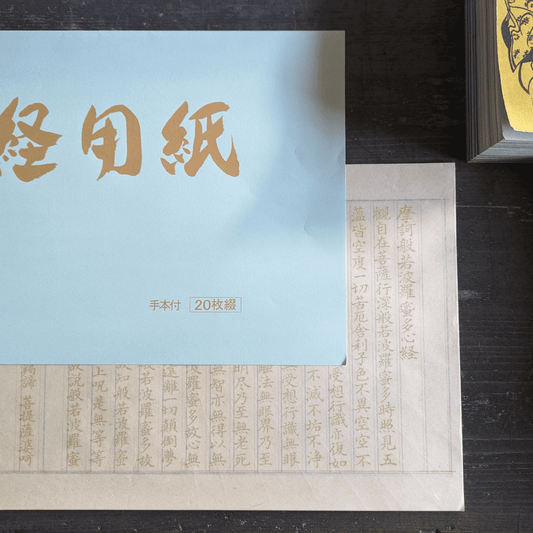 経用紙
手本付 20枚綴
摩訶般若波羅蜜多心経
観自在菩薩行深般若波羅蜜多時照見五
蘊皆空度一切苦厄舎利子色不異空空不
受想行識亦復如
不滅不垢不浄
受想行識無眼
法無眼界乃至
明尽乃至無老死
無智亦無得以無
羅蜜多故心無
遠離一切顛倒夢
般若波羅蜜多故
故知般若波羅蜜
上呪是無等等
故説般若波羅蜜
羯諦 菩提薩婆訶